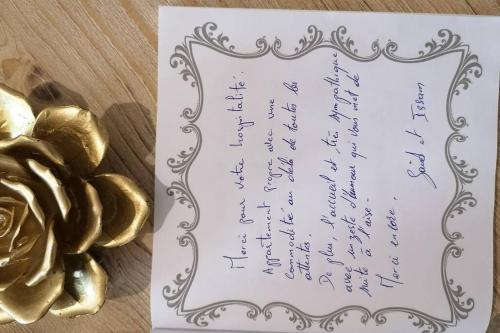 Merci pour votre hospitalité.
Appartement propre avec une
commodité au delà de toutes les
attentes.
De plus, l'accueil est très sympathique
avec un zeste d'humour qui vous met de
suite à l'aise.
Merci encore.
Saïd et Issam